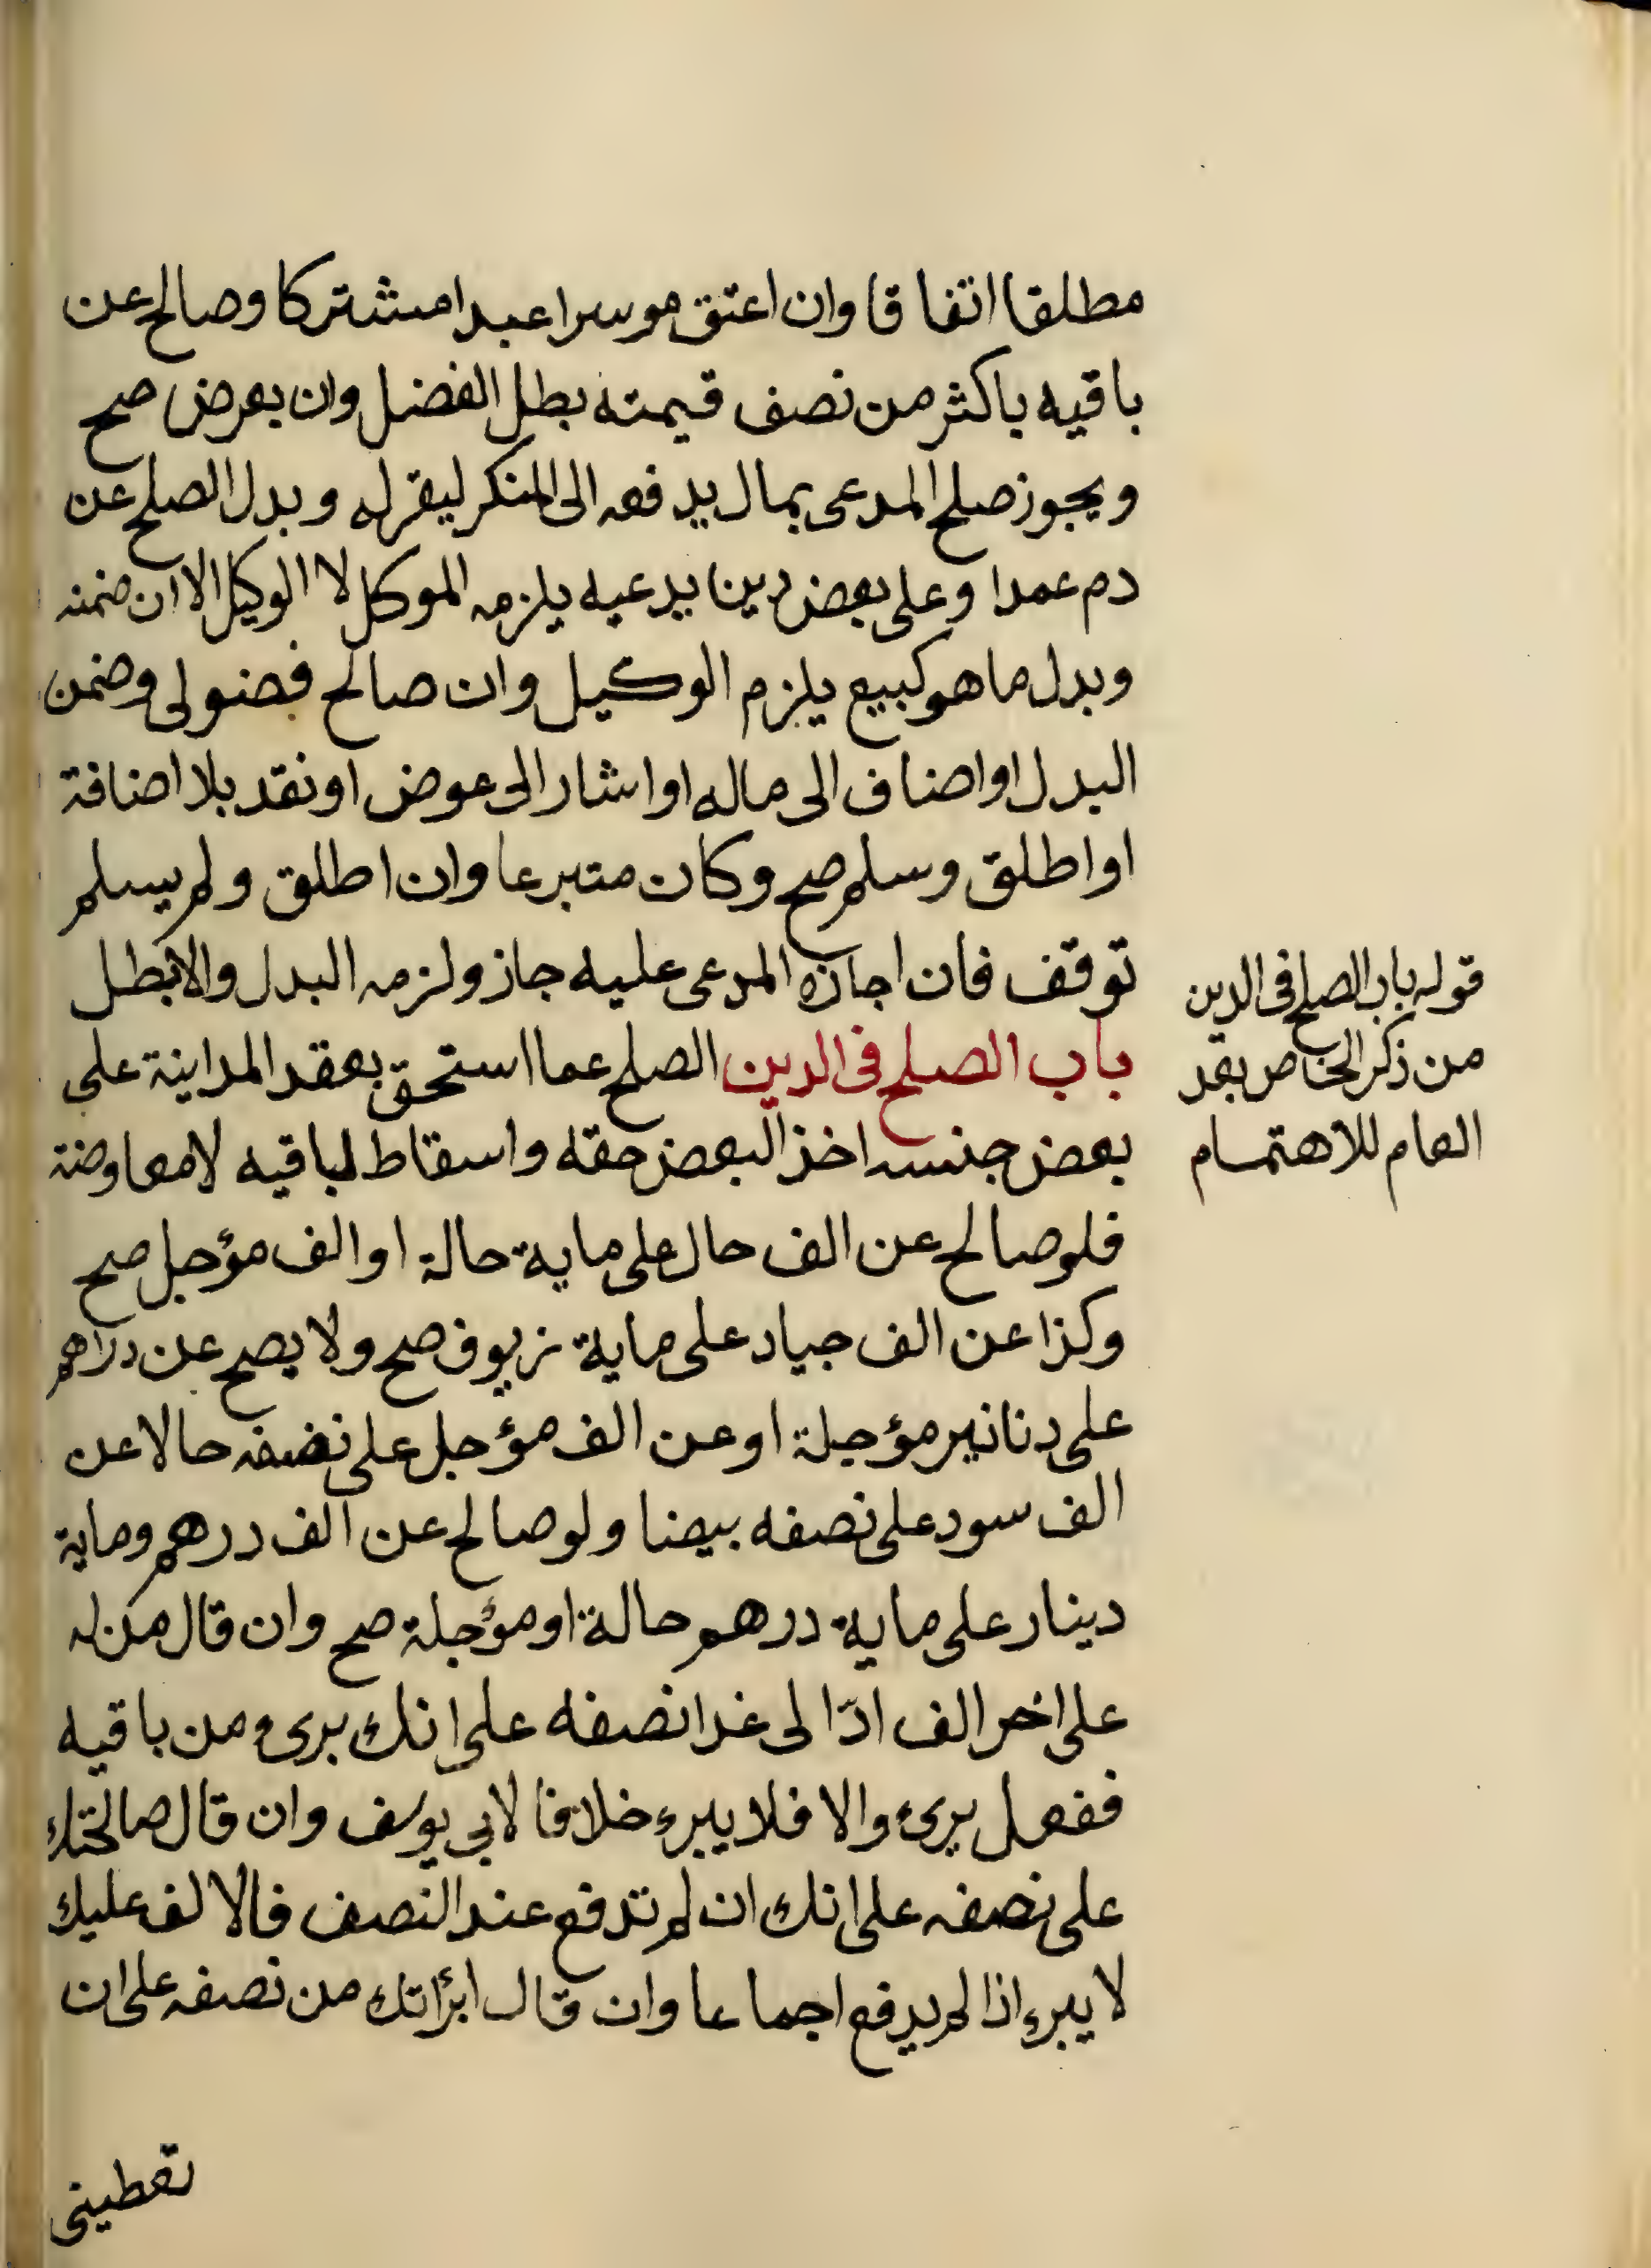 مطلقا اتفاقا وان اعتق موسرا عبدا مشتركا وصالح عن
باقيه باكثر من نصف قيمته بطل الفضل وان بعرض صح
ويجوز صلح المدعى بمال يدفعه الى المنكر ليقرله وبدل الصلح عن
دم عمدا وعلى بعض دين يدعيه يلزمه الموكل لا الوكيل الا ان ضمنه
وبدل ما هو كبيع يلزم الوكيل وان صالح فضولى وضمن
البدل او اضاف الى ماله او اشار الى عوض او نقد بلا اضافة
او اطلق وسلم صح وكان متبرعا وان اطلق ولم يسلم
توقف فان اجازه المدعى عليه جاز ولزمه البدل والا بطل
باب الصلح فى الدين الصلح عما استحق بعقد المداينة على
بعض جنسه اخذ لبعض حقه واسقاط لباقيه لا معاوضة
فلو صالح عن الف حال على ماية حالة او الف مؤجل صح
وكذا عن الف جياد على ماية زيوف صح ولا يصح عن دراهم
على دنانير مؤجلة او عن الف مؤجل على نصفه حالا عن
الف سود على نصفه بيضا ولو صالح عن الف درهم وماية
دينار على ماية درهم حالة او مؤجلة صح وان قال من له
على اخر الف ادّا لى غدا نصفه على انك برىء من باقيه
ففعل برىء والا فلا يبرء خلافا لابي يوسف وان قال صالحتك
على نصفه على انك ان لم تدفع عند النصف فالالف عليك
لا يبرء اذا لم يدفع اجماعا وان قال ابرأتك من نصفه على ان
تعطينى
قوله باب الصلح فى الدين
من ذكر الخاص بعد
العام للاهتمام